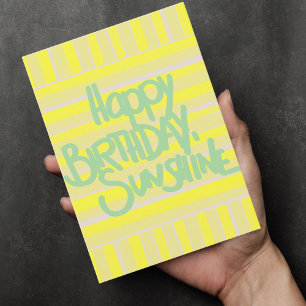 Happy
BIRTHDAY,
SUNSHINE